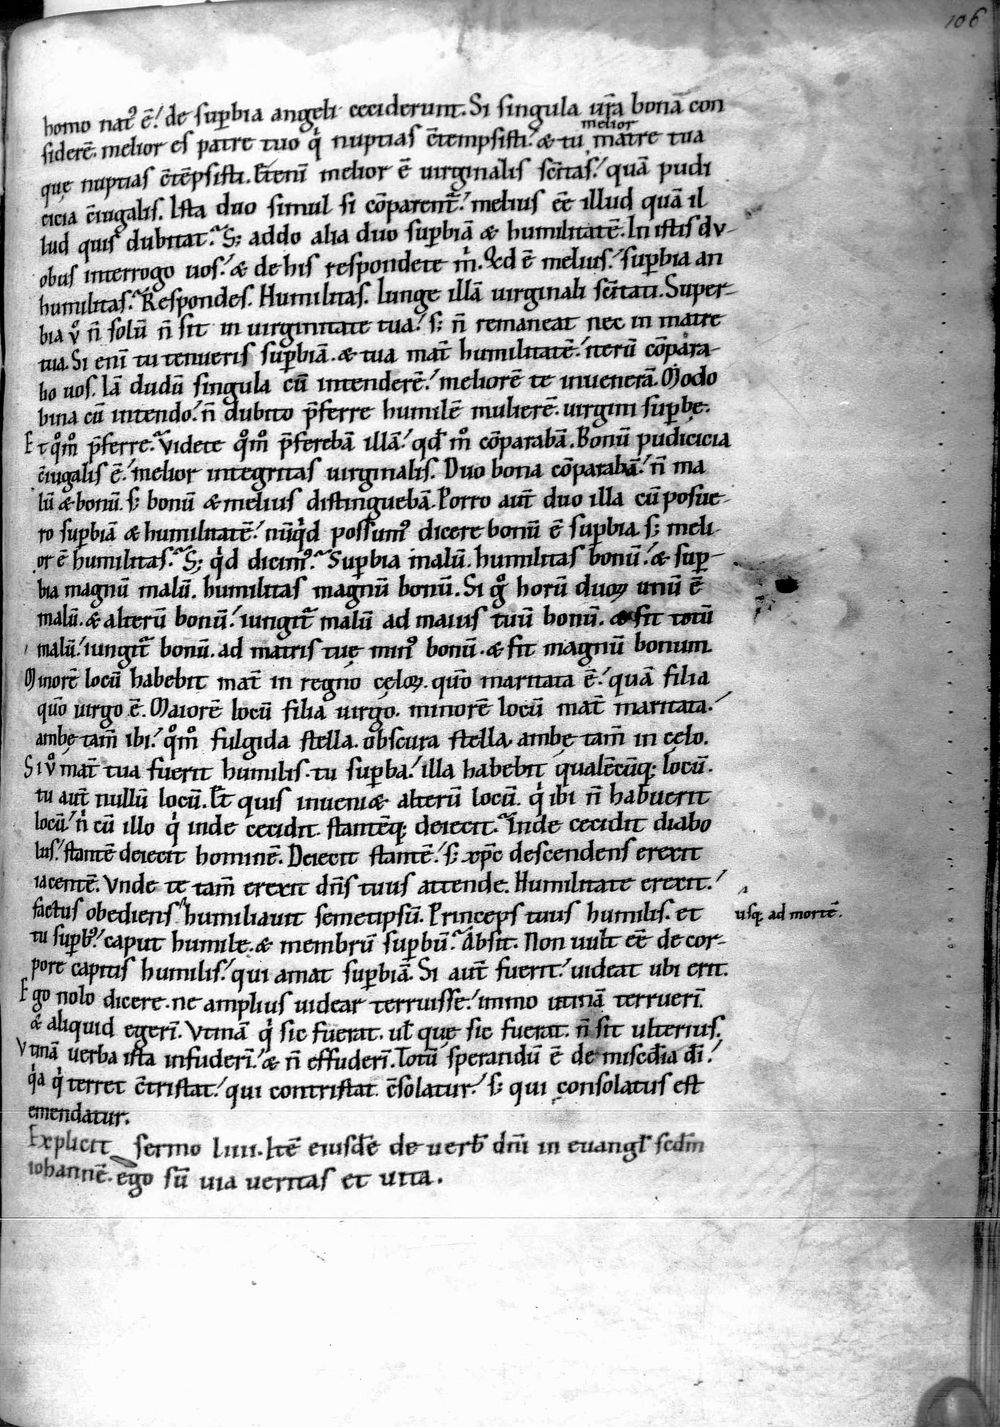 106
homo nat᾽ ē. de sup̄bia angeli ceciderunt. Si singula ur̄a bona con
siderē. melior es patre tuo q̇ nuptias c̄tempsisti. & tu melior matre tua
quę nuptias c̄tēpsisti. Eteni melior ē uirginalis sc̄itas. quā pudi
cicia c̄iugalis. Ista duo simul si cōparent᷑. melius ēē illud quā il
lud quis dubitat. S; addo alia duo sup̄biā & humilitatē. In istis du
obus interrogo uos. & de his respondete ṁ. Qd ē melius. sup̄bia an
humilitas. Respondes. Humilitas. Iunge illā uirginali sc̄itati. Super
bia v̊ n̄ solū n̄ sit in uirginitate tua. s; n̄ remaneat nec in matre
tua. Si enī tu tenueris sup̄biā. & tua mat̄ humilitatē. iterū cōpara
bo uos. Iā dudū singula cū intenderē. meliorē te inuenerā. Modo
bina cū intendo. n̄ dubito p̄ferre humilē mulierē. uirgini sup̄bę.
Et q̊m̊ p̄ferre. Videte q̊m̊ p̄ferebā illā. qd̄ m̊ cōparabā. Bonū pudicicia
c̄iugalis ē. melior integritas uirginalis. Duo bona cōparabā. n̄ ma
lū & bonū. s; bonū & melius distinguebā. Porro aut̄ duo illa cū posue
ro sup̄biā & humilitatē. nūq̇d possum᾽ dicere bonū ē sup̄bia. s; meli
or ē humilitas. S; q̇d dicim᾽. Sup̄bia malū. humilitas bonū. & sup̄
bia magnū malū. humilitas magnū bonū. Si g̊ horū duoꝝ unū ē
malū. & alterū bonū. iungit᷑ malū ad maius tuū bonū. & fit totū
malū. iungit᷑ bonū. ad matris tuę min᾽ bonū. & fit magnū bonum.
Minorē locū habebit mat̄ in regno cęloꝝ. quō maritata ē. quā filia
quō uirgo ē. Maiorē locū filia uirgo. minorē locū mat̄ maritata.
ambę tam̄ ibi. q̊m̊ fulgida stella. obscura stella. ambę tam̄ in cęlo.
Si v̊ mat̄ tua fuerit humilis. tu sup̄ba. illa habebit qualēcūq; locū.
tu aut̄ nullū locū. Et quis inueni& alterū locū. q̇ ibi n̄ habuerit
locū. ṅ cū illo q̇ inde cecidit. stantēq; deiecit. Inde cecidit diabo
lus. stantē deiecit hominē. Deiecit stantē. s; xp̄c descendens erexit
iacentē. Vnde te tam̄ erexit dn̄s tuus attende. Humilitate erexit.
factus obediens humiliauit semetipsū. Princeps tuus humilis. et
usq; ad mortē.
tu sup̄b᾽. caput humile. & membrū sup̄bū. Absit. Non uult ēē de cor
pore capitis humilis. qui amat sup̄biā. Si aut̄ fuerit. uideat ubi erit.
Ego nolo dicere. ne amplius uidear terruisse. immo utinā terruerī.
& aliquid egerī. Vtinā q̇ sic fuerat. ul̄ quę sic fuerat. n̄ sit ulterius.
Vtinā uerba ista infuderī. & n̄ effuderī. Totū sperandū ē de mis̄cdia dī.
q̇a q̇ terret c̄tristat. qui contristat c̄solatur. s; qui consolatus est
emendatur.
Explicit sermo liiii. Itē eiusdē de uerb̄ dn̄i in euangl̄ scd̄m
iohannē. ego sū uia ueritas et uita.